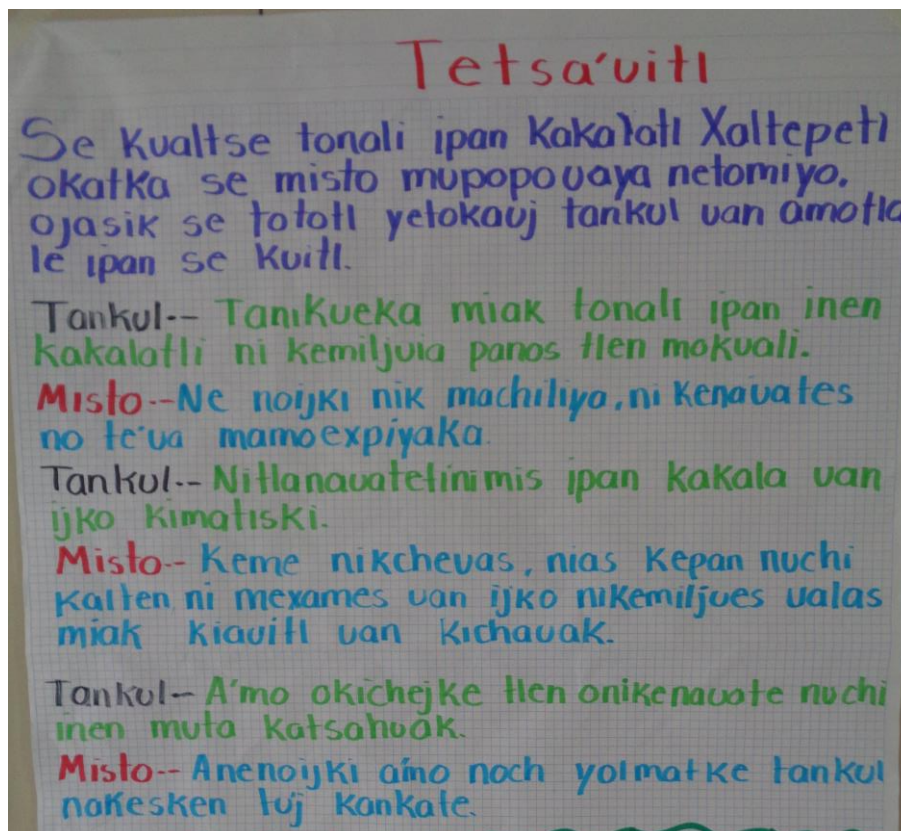 Tetsa'uitl
Se Kualtse tonali ipan Kakalatl Xaltepetl
okatka se misto mupopouaya netomiyo.
ojasik se tototl yetokauj tankul uan amotla
le ipan se Kuitl.
Tankul-- Tanikueka miak tonali ipan inen
kakalatli ni kemiljuia panos tlen mokuali.
Misto--Ne noijki nik machiliya, ni kenauates
no te'ua mamoexpiyaka.
Tankul-- Nitlanauatetinimis ipan kakala uan
ijko kimatiski.
Misto-- Keme nikcheuas, nias kepan nuchi
kalten ni mexames uan ijko nikemiljues ualas
miak kiauitl uan kichauak.
Tankul-- A'mo okichejke tlen onikenauate nuchi
inen muta katsahuak.
Misto-- Anenoijki a'mo noch yolmatke tankul
nakesken tuj kankate.